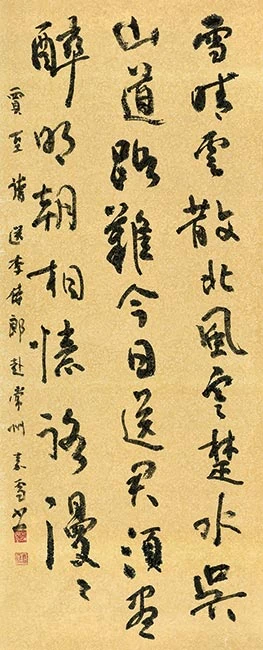 雪晴雲散北風寒楚水吳
山道路難今日送君須盡
醉明朝相憶路漫〻
賈至詩送李侍郎赴常州 雪